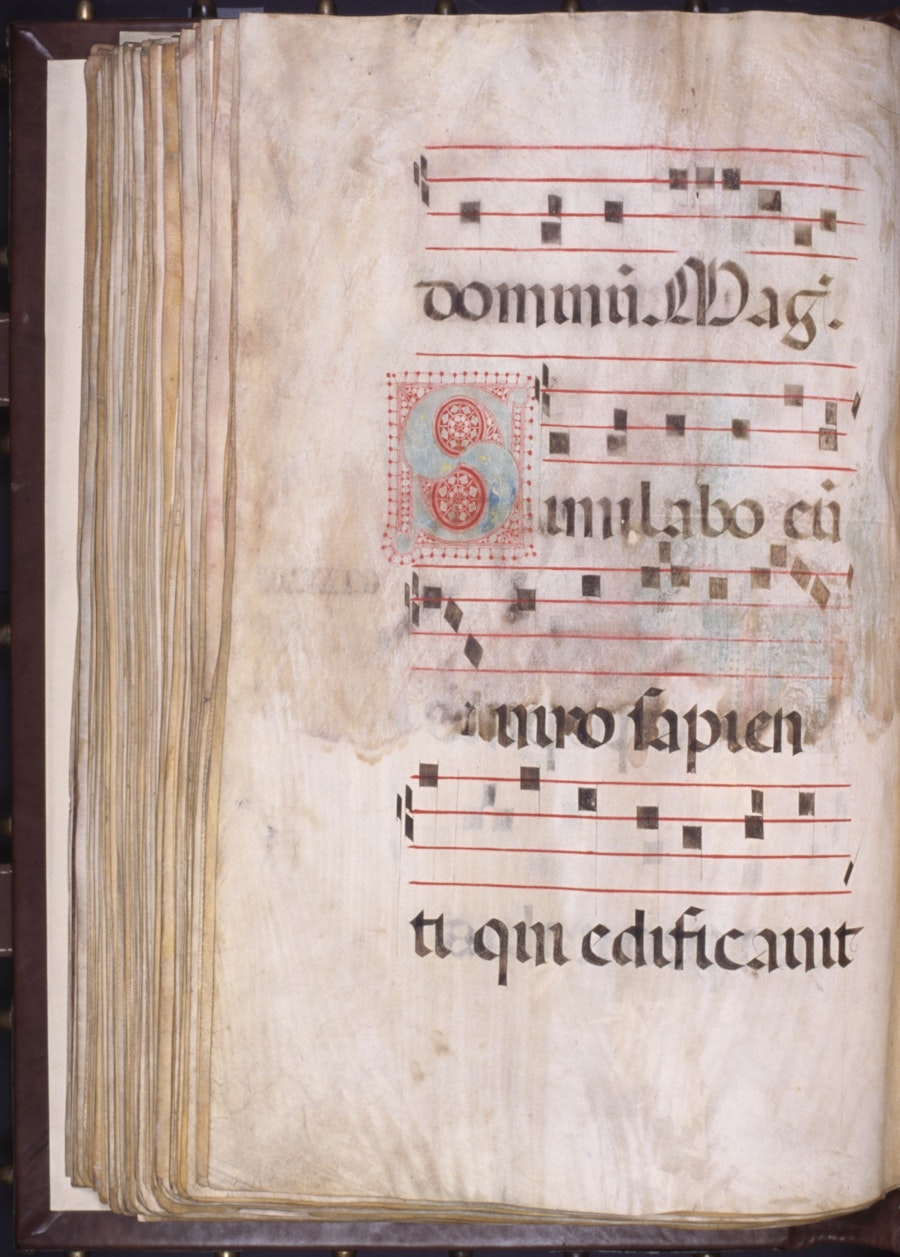 dominũ. Mag̃.
Simulabo eũ
uiro sapien
ti qui edificauit